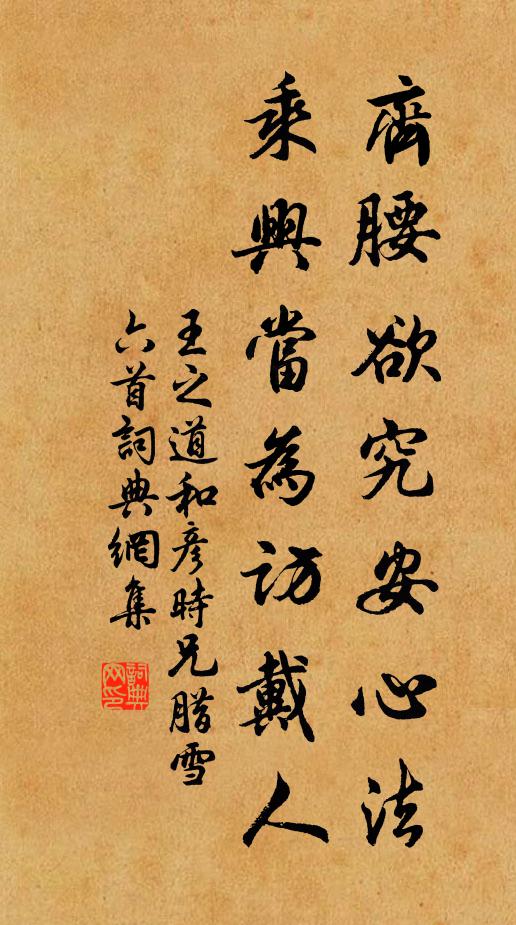 齊腰欲究安心法
乘興當為訪戴人
王之道和彥時兄腊雪
六首詞典網集
詞典网印